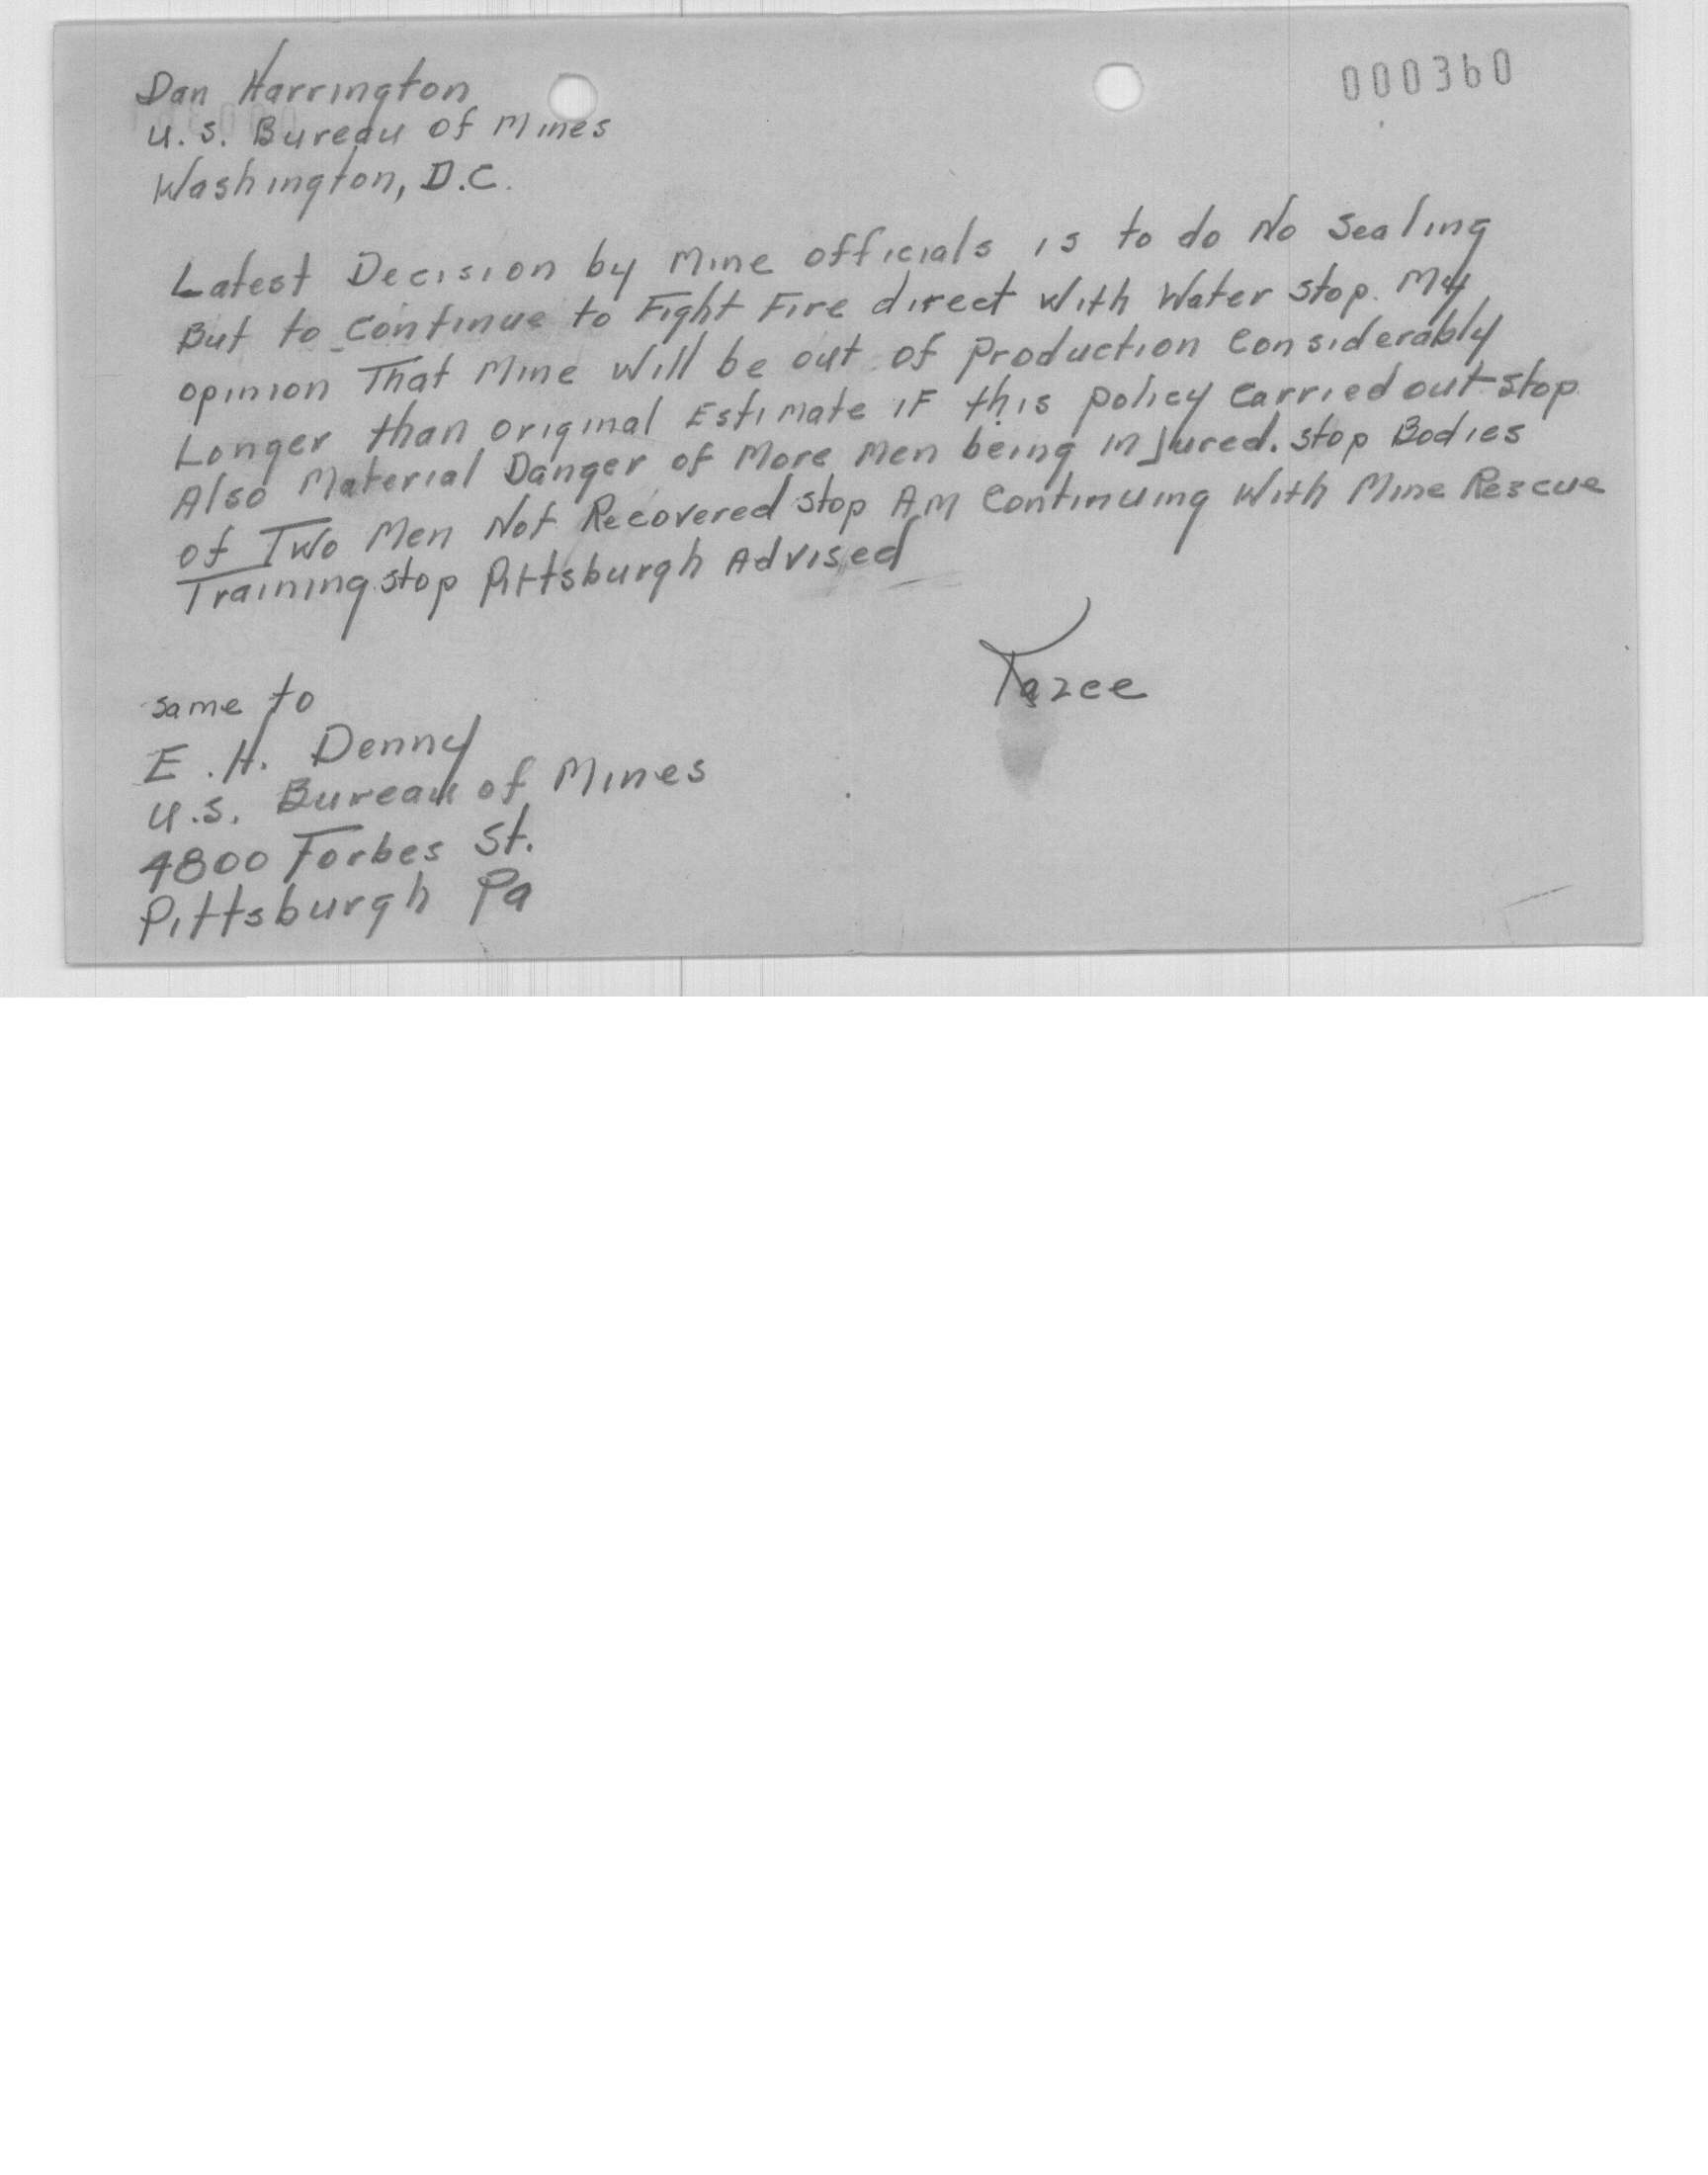 000360
Dan Harrington
U.S. Bureau of Mines
Washington, D.C.
Latest Decision by Mine officials is to do No Sealing
But to continue to Fight Fire direct With Water stop. My
opinion That Mine Will be out of production Considerably
Longer than original Estimate iF this policy Carried out stop
Also Material Danger of More Men being Injured. stop Bodies
of Two Men Not Recovered stop Am Continuing With Mine Rescue
Training stop Pittsburgh Advised
Kazee
same to
E. H. Denny
U.S. Bureau of Mines
4800 Forbes St.
Pittsburgh Pa